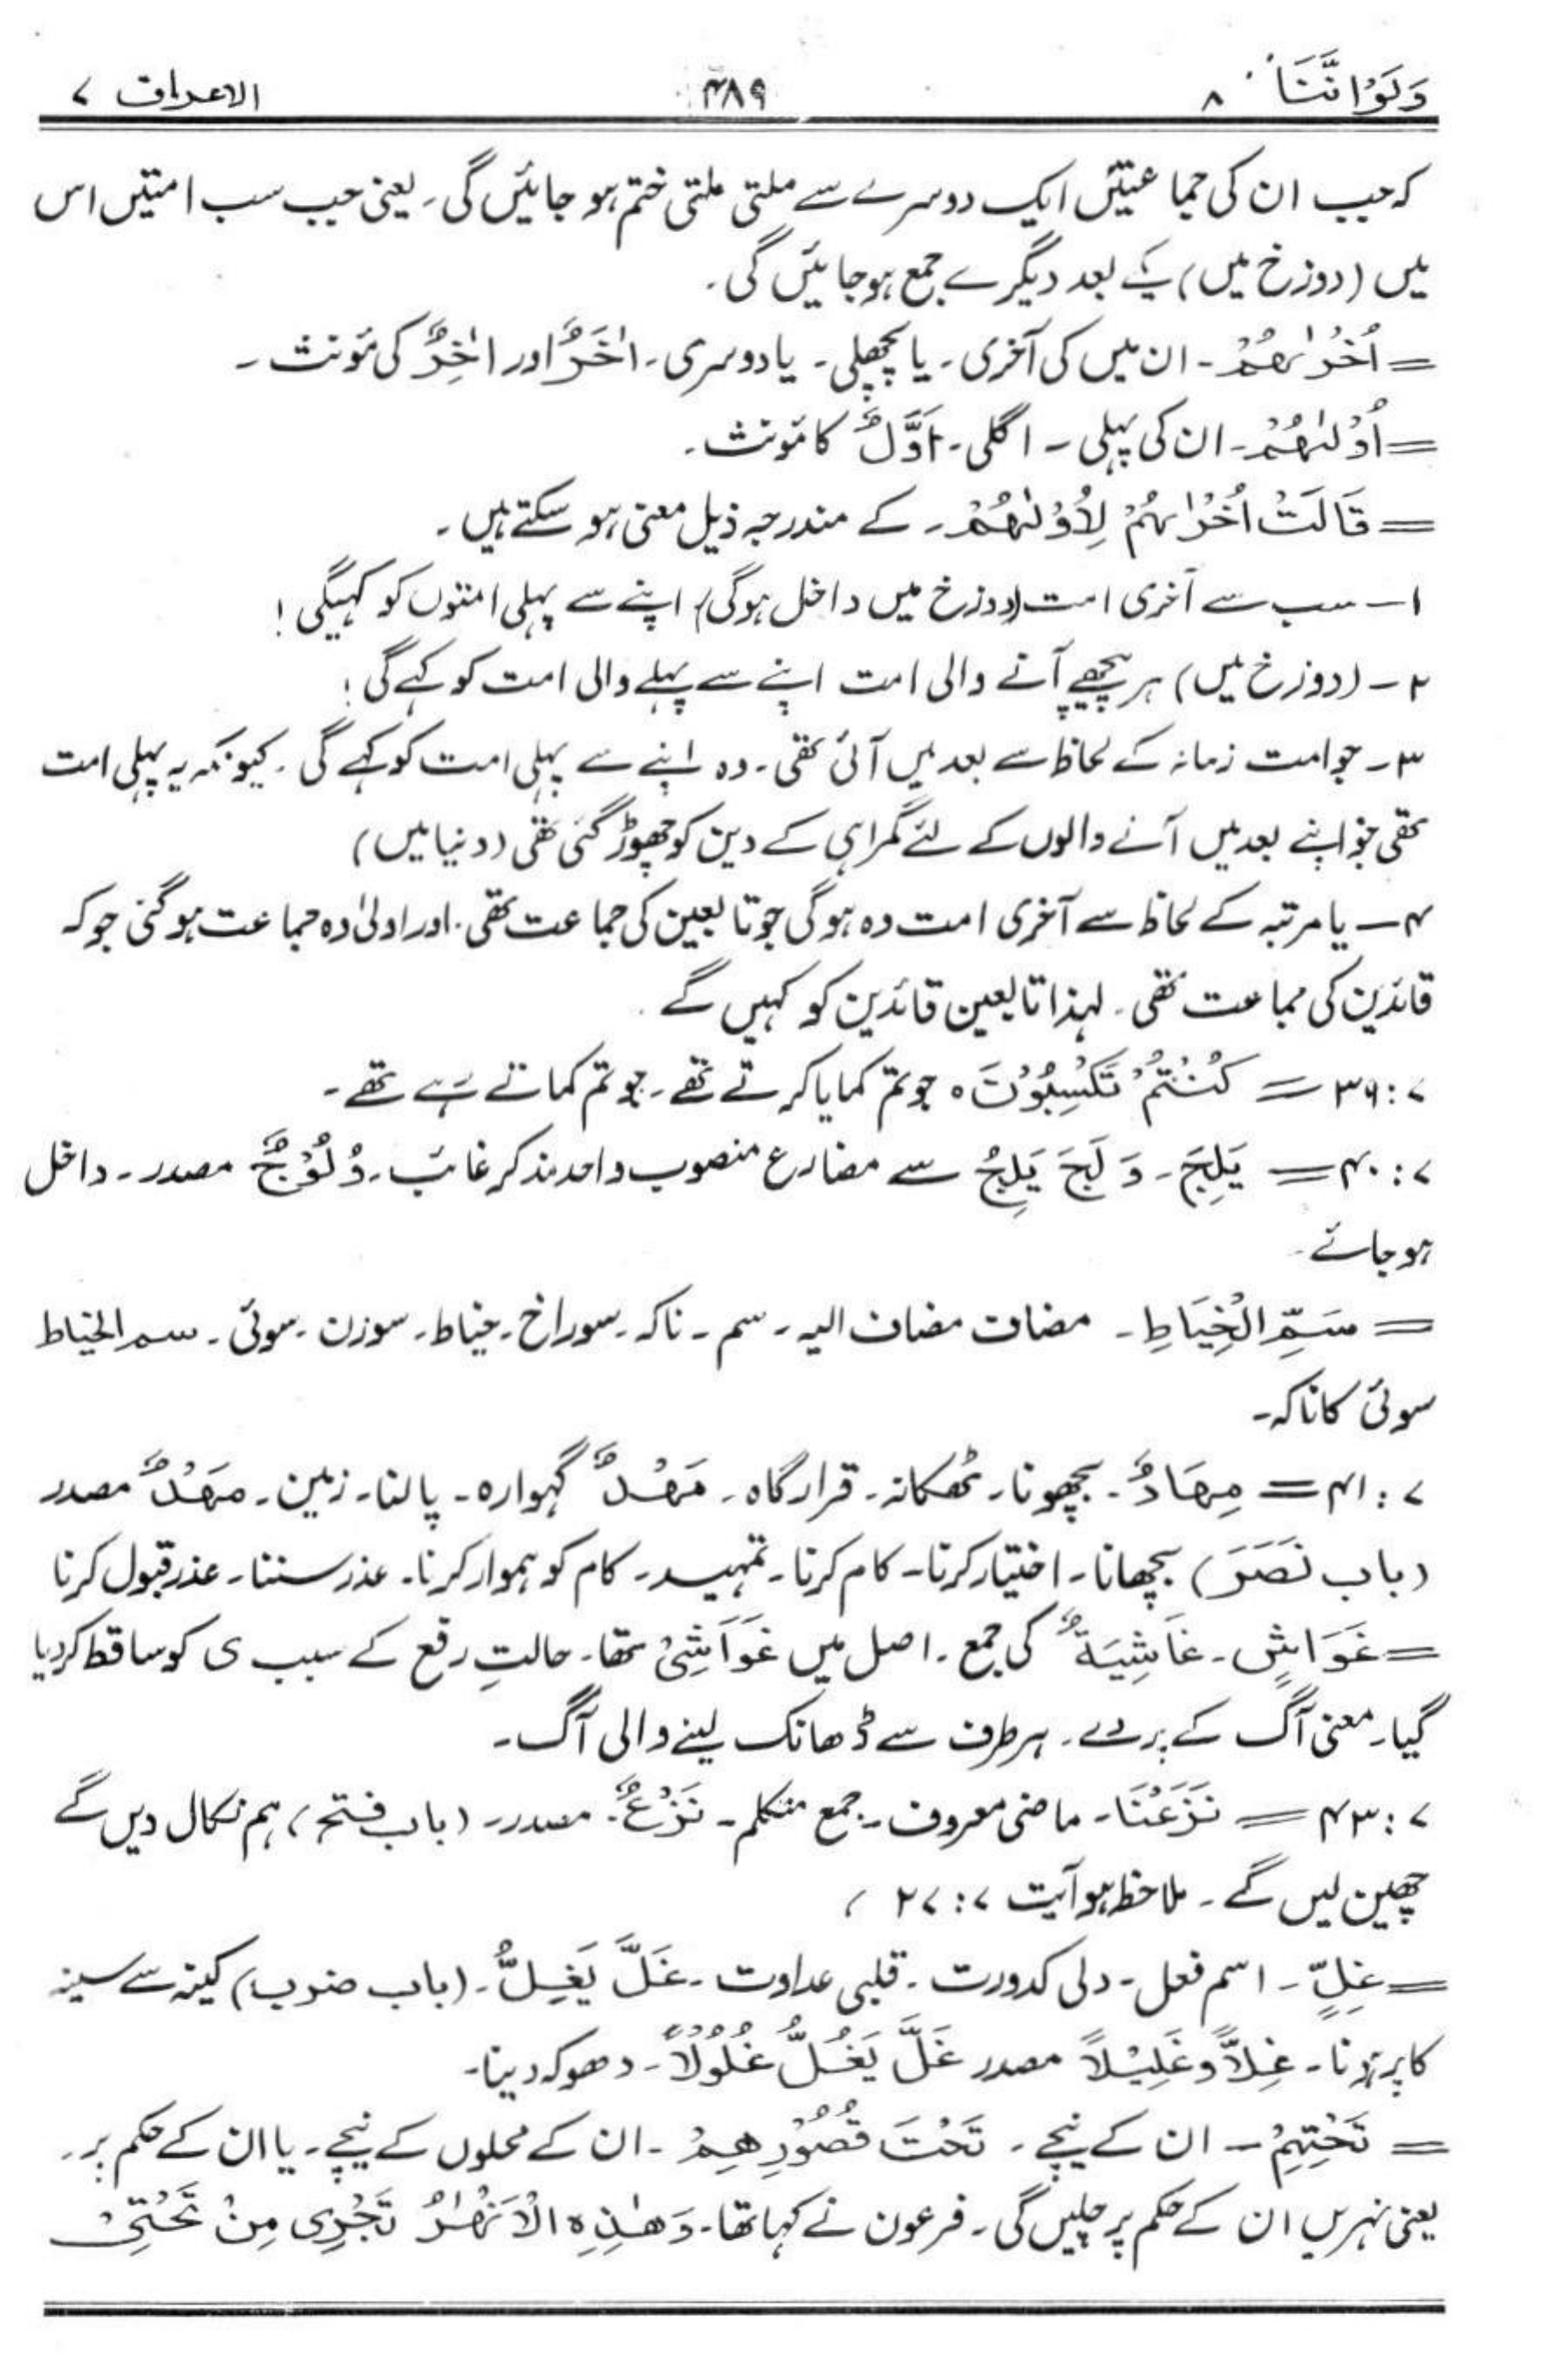 وَلَوْاَنَّنَا ۸ ۴۸۹ الاعراف ۷
کہ جب ان کی جماعتیں ایک دوسرے سے ملتی ملتی ختم ہو جائیں گی۔ یعنی جب سب امتیں اس
میں (دوزخ میں) یکے بعد دیگرے جمع ہو جائیں گی۔
= اُخْرٰىهُمْ۔ ان میں کی آخری۔ یا پچھلی۔ یا دوسری۔ اٰخَرُ اور اٰخِرٌ کی مؤنث۔
= اُوْلٰىهُمْ۔ ان کی پہلی۔ اگلی۔ اَوَّلٌ کا مؤنث۔
= قَالَتْ اُخْرٰىهُمْ لِاُوْلٰىهُمْ۔ کے مندرجہ ذیل معنی ہو سکتے ہیں۔
۱۔ سب سے آخری امت (دوزخ میں داخل ہوگی) اپنے سے پہلی امتوں کو کہیگی!
۲۔ (دوزخ میں) ہر پیچھے آنے والی امت اپنے سے پہلے والی امت کو کہے گی!
۳۔ جو امت زمانہ کے لحاظ سے بعد میں آئی تھی۔ وہ اپنے سے پہلی امت کو کہے گی۔ کیونکہ یہ پہلی امت
تھی جو اپنے بعد میں آنے والوں کے لئے گمراہی کے دین کو چھوڑ گئی تھی (دنیا میں)
۴۔ یا مرتبہ کے لحاظ سے آخری امت وہ ہوگی جو تابعین کی جماعت تھی۔ اور اولیٰ وہ جماعت ہوگی جو کہ
قائدین کی جماعت تھی۔ لہذا تابعین قائدین کو کہیں گے۔
۷: ۳۹ = كُنْتُمْ تَكْسِبُوْنَ ہ جو تم کمایا کرتے تھے۔ جو تم کماتے رہے تھے۔
۷: ۴۰ = يَلِجَ۔ وَلَجَ يَلِجُ سے مضارع منصوب واحد مذکر غائب۔ وُلُوْجٌ مصدر۔ داخل
ہو جائے۔
= سَمِّ الْخِيَاطِ۔ مضاف مضاف الیہ۔ سم۔ ناکہ۔ سوراخ۔ خیاط۔ سوزن۔ سوئی۔ سم الخیاط
سوئی کا ناکہ۔
۷: ۴۱ = مِهَادٌ۔ بچھونا۔ ٹھکانہ۔ قرارگاہ۔ مَهْدٌ گہوارہ۔ پالنا۔ زمین۔ مَهْدٌ مصدر
(باب نَصَرَ) بچھانا۔ اختیار کرنا۔ کام کرنا۔ تمہید۔ کام کو ہموار کرنا۔ عذر سننا۔ عذر قبول کرنا
= غَوَاشٍ۔ غَاشِيَةٌ کی جمع۔ اصل میں غَوَاشِیُ تھا۔ حالتِ رفع کے سبب ی کو ساقط کر دیا
گیا۔ معنی آگ کے پردے۔ ہر طرف سے ڈھانک لینے والی آگ۔
۷: ۴۳ = نَزَعْنَا۔ ماضی معروف۔ جمع متکلم۔ نَزْعٌ۔ مصدر۔ (باب فتح) ہم نکال دیں گے
چھین لیں گے۔ ملاحظہ ہو آیت ۷: ۲۷)
= غِلٍّ۔ اسم فعل۔ دلی کدورت۔ قلبی عداوت۔ غَلَّ يَغِلُّ۔ (باب ضرب) کینہ سے سینہ
کا پر ہونا۔ غِلًّا وَغَلِيْلًا مصدر غَلَّ يَغُلُّ غُلُوْلًا۔ دھوکہ دینا۔
= تَحْتِهِمْ۔ ان کے نیچے۔ تَحْتَ قُصُوْرِهِمْ۔ ان کے محلوں کے نیچے۔ یا ان کے حکم پر۔
یعنی نہریں ان کے حکم پر چلیں گی۔ فرعون نے کہا تھا۔ وَهٰذِهِ الْاَنْهٰرُ تَجْرِی مِنْ تَحْتِیْ